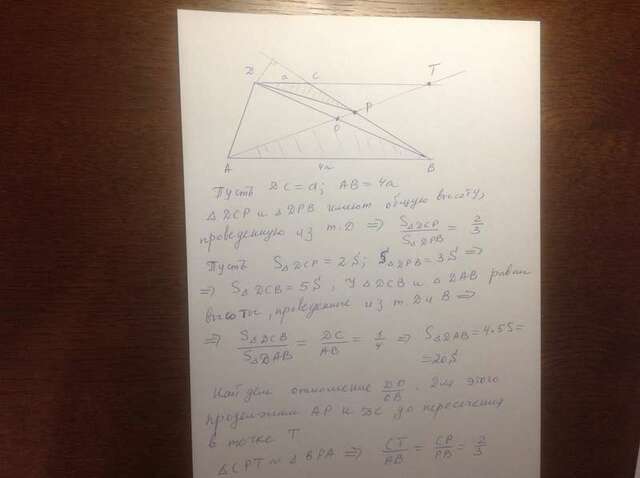 D a C T
P
O
A 4a B
Пусть DC = a; AB = 4a
Δ DCP и Δ DPB имеют общую высоту,
проведенную из т. D ⇒ S Δ DCP / S Δ DPB = 2/3
Пусть S Δ DCP = 2S; S Δ DPB = 3S ⇒
⇒ S Δ DCB = 5S; У Δ DCB и Δ DAB равны
высоты, проведенные из т. D и B ⇒
⇒ S Δ DCB / S Δ DAB = DC / AB = 1/4 ⇒ S Δ DAB = 4·5S =
= 20S
Найдем отношение DO / OB. Для этого
продолжим AP и DC до пересечения
в точке T
Δ CPT ~ Δ BPA ⇒ CT / AB = CP / PB = 2/3